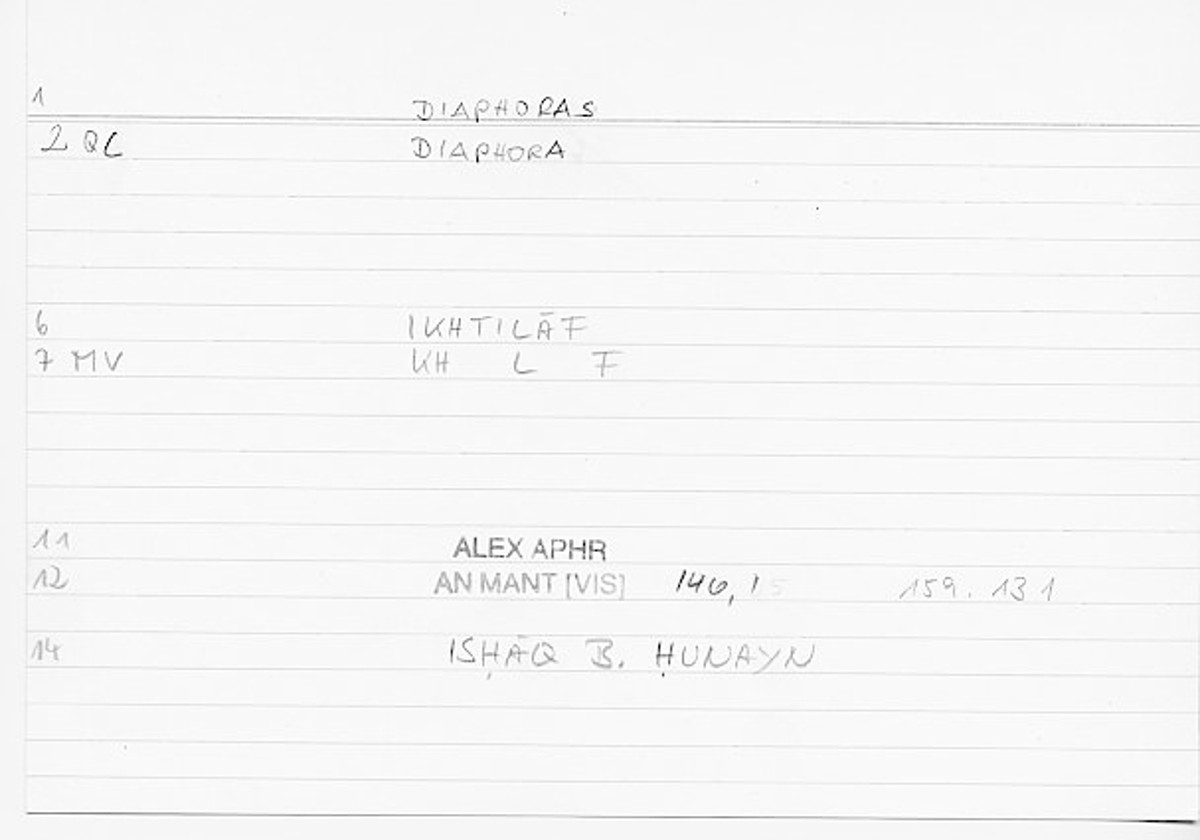 1 DIAPHORAS
2 QL DIAPHORA
6 IKHTILĀF
7 MV KH L F
11 ALEX APHR
12 AN MANT [VIS] 146,15 159.131
14 ISḤĀQ B. ḤUNAYN